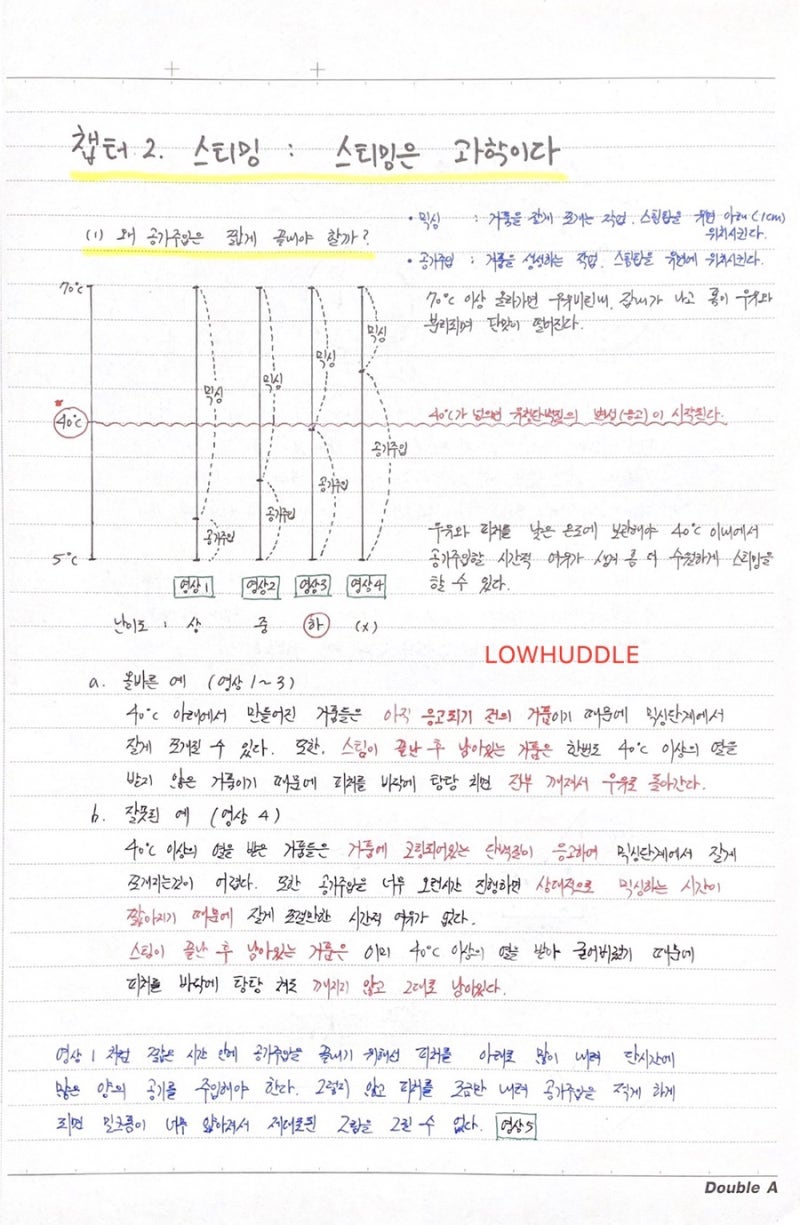 챕터 2. 스티밍 : 스티밍은 과학이다
(1) 왜 공기주입은 짧게 끝내야 할까?
• 믹싱 : 거품을 잘게 쪼개는 작업. 스팀팁을 유면 아래(1cm)
위치시킨다.
• 공기주입 : 거품을 생성하는 작업. 스팀팁을 유면에 위치시킨다.
70°C
70°C 이상 올라가면 우유비린내, 잡내가 나고 폼이 우유와
분리되며 단맛이 떨어진다.
믹싱 믹싱 믹싱 믹싱
40°C
40°C가 넘으면 유청단백질의 변성(응고)이 시작된다.
공기주입 공기주입 공기주입 공기주입
우유와 피처를 낮은 온도에 보관해야 40°C 이내에서
공기주입할 시간적 여유가 생겨 좀 더 수월하게 스티밍을
할 수 있다.
5°C
영상1 영상2 영상3 영상4
난이도 : 상 중 하 (x)
LOWHUDDLE
a. 올바른 예 (영상 1~3)
40°C 아래에서 만들어진 거품들은 아직 응고되기 전의 거품이기 때문에 믹싱단계에서
잘게 쪼개질 수 있다. 또한, 스팀이 끝난 후 남아있는 거품은 한번도 40°C 이상의 열을
받지 않은 거품이기 때문에 피처를 바닥에 탕탕 치면 전부 깨져서 우유로 돌아간다.
b. 잘못된 예 (영상 4)
40°C 이상의 열을 받은 거품들은 거품에 코팅되어있는 단백질이 응고하여 믹싱단계에서 잘게
쪼개지는것이 어렵다. 또한 공기주입을 너무 오랜시간 진행하면 상대적으로 믹싱하는 시간이
짧아지기 때문에 잘게 쪼갤만한 시간적 여유가 없다.
스팀이 끝난 후 남아있는 거품은 이미 40°C 이상의 열을 받아 굳어버렸기 때문에
피처를 바닥에 탕탕 쳐도 깨지지 않고 그대로 남아있다.
영상 1 처럼 짧은 시간 안에 공기주입을 끝내기 위해선 피처를 아래로 많이 내려 단시간에
많은 양의 공기를 주입해야 한다. 그렇지 않고 피처를 조금만 내려 공기주입을 적게 하게
되면 밀크폼이 너무 얇아져서 제대로된 그림을 그릴 수 없다. 영상5
Double A